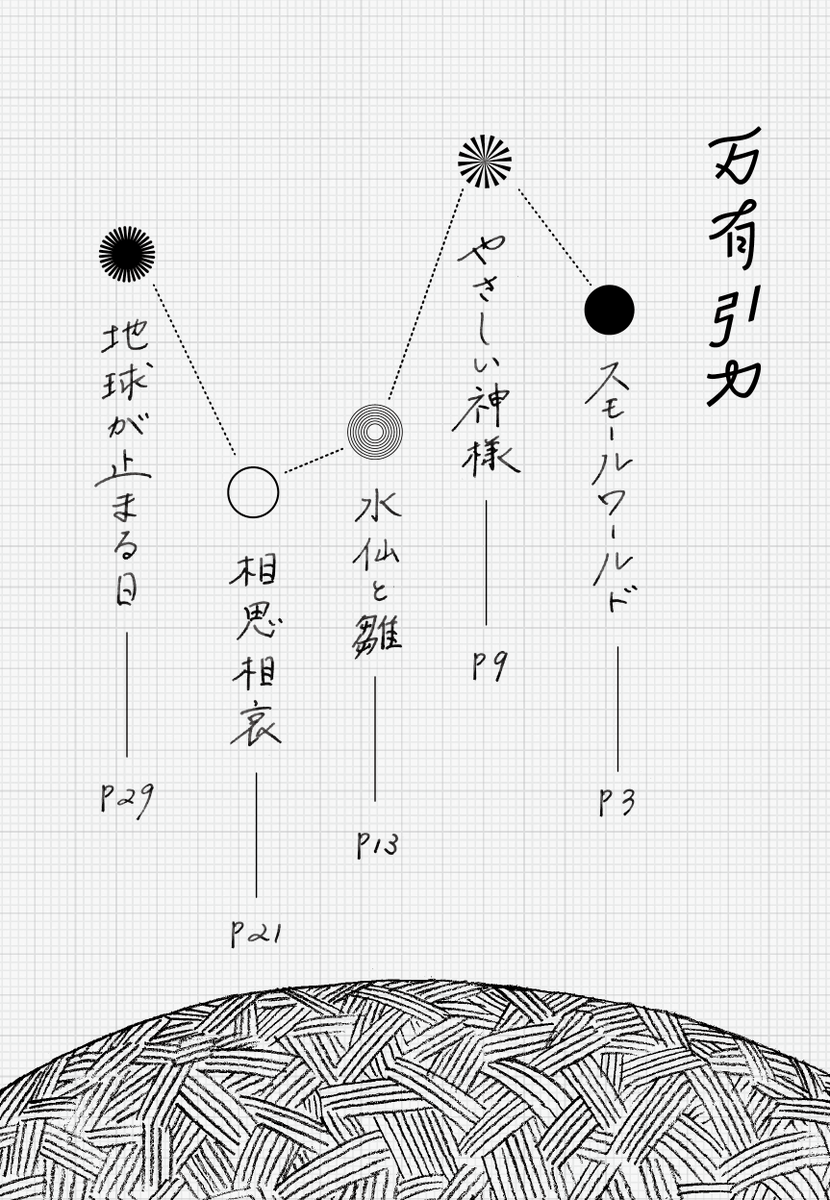 万有引力
スモールワールド
P3
やさしい神様
P9
水仙と雛
P13
相思相哀
P21
地球が止まる日
P29